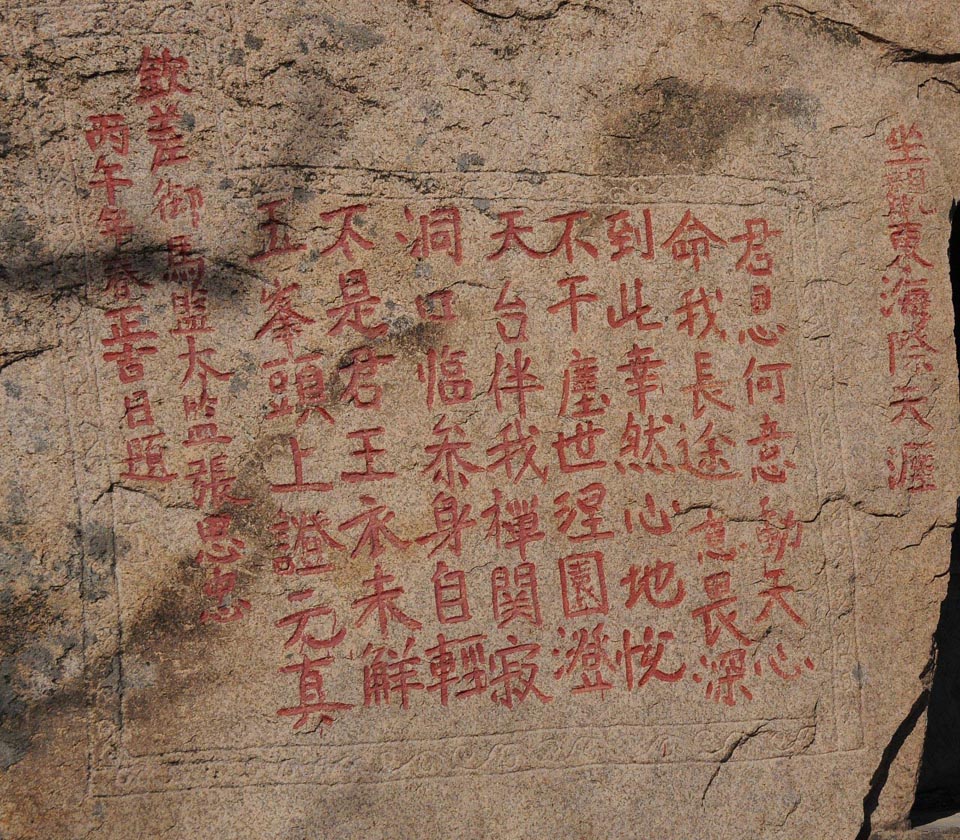 坐觀東海際天涯
君恩何意動天心
命我長途意畏深
到此幸然心地悅
不干塵世涅園澄
天台伴我禪関寂
洞口臨叅身自輕
不是君王衣未鮮
五峯頭上證元真
欽差御馬監太监張思忠
丙午年春正吉日題